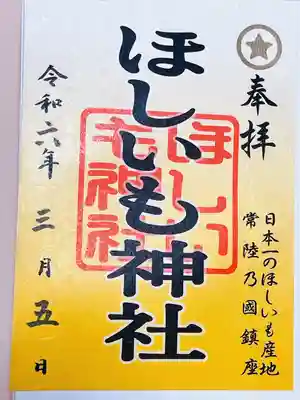 奉拝
日本一のほしいも産地
常陸乃國鎮座
ほしいも神社
ほしい
も神社
令和六年 三月 五日